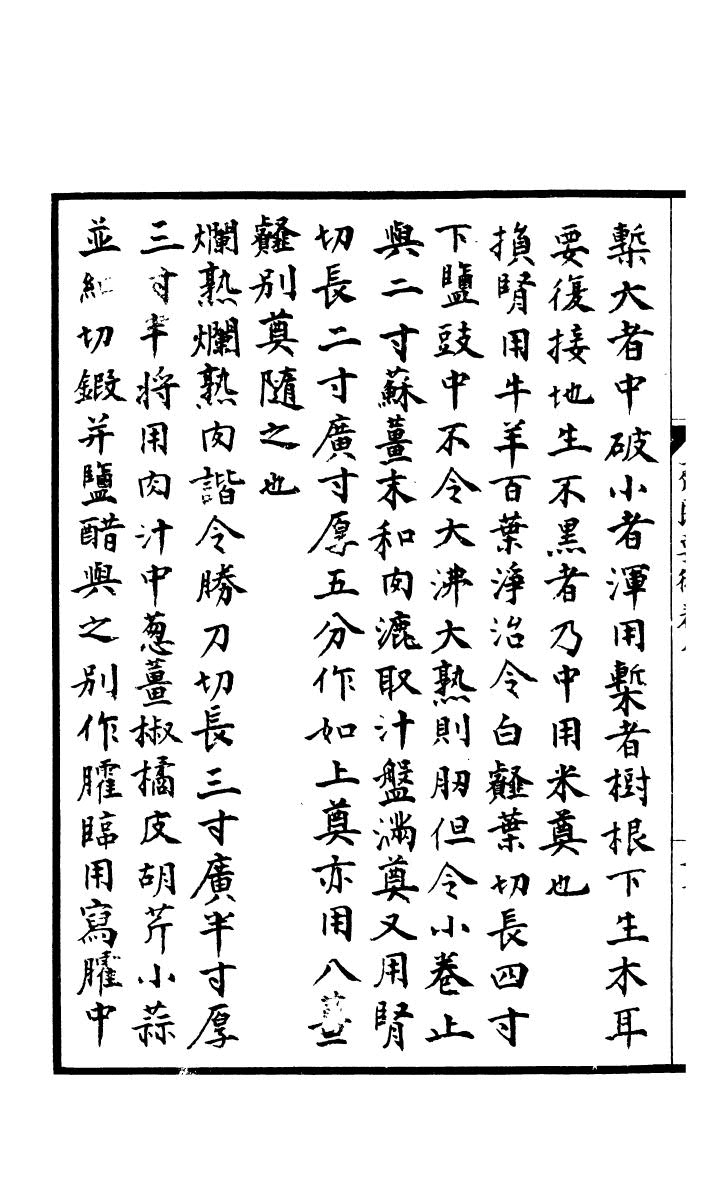 槧大者中破小者渾用槧者樹根下生木耳
要復接地生不黑者乃中用米奠也
損腎用牛羊百葉淨治令白䪥葉切長四寸
下鹽豉中不令大沸大熟則肕但令小卷止
與二寸蘇薑末和肉漉取汁盤滿奠又用腎
切長二寸廣寸厚五分作如上奠亦用八薑
䪥別奠隨之也
爛熟爛熟肉諧令勝刀切長三寸廣半寸厚
三寸半將用肉汁中葱薑椒橘皮胡芹小蒜
並細切鍛并鹽醋與之別作臛臨用寫臛中